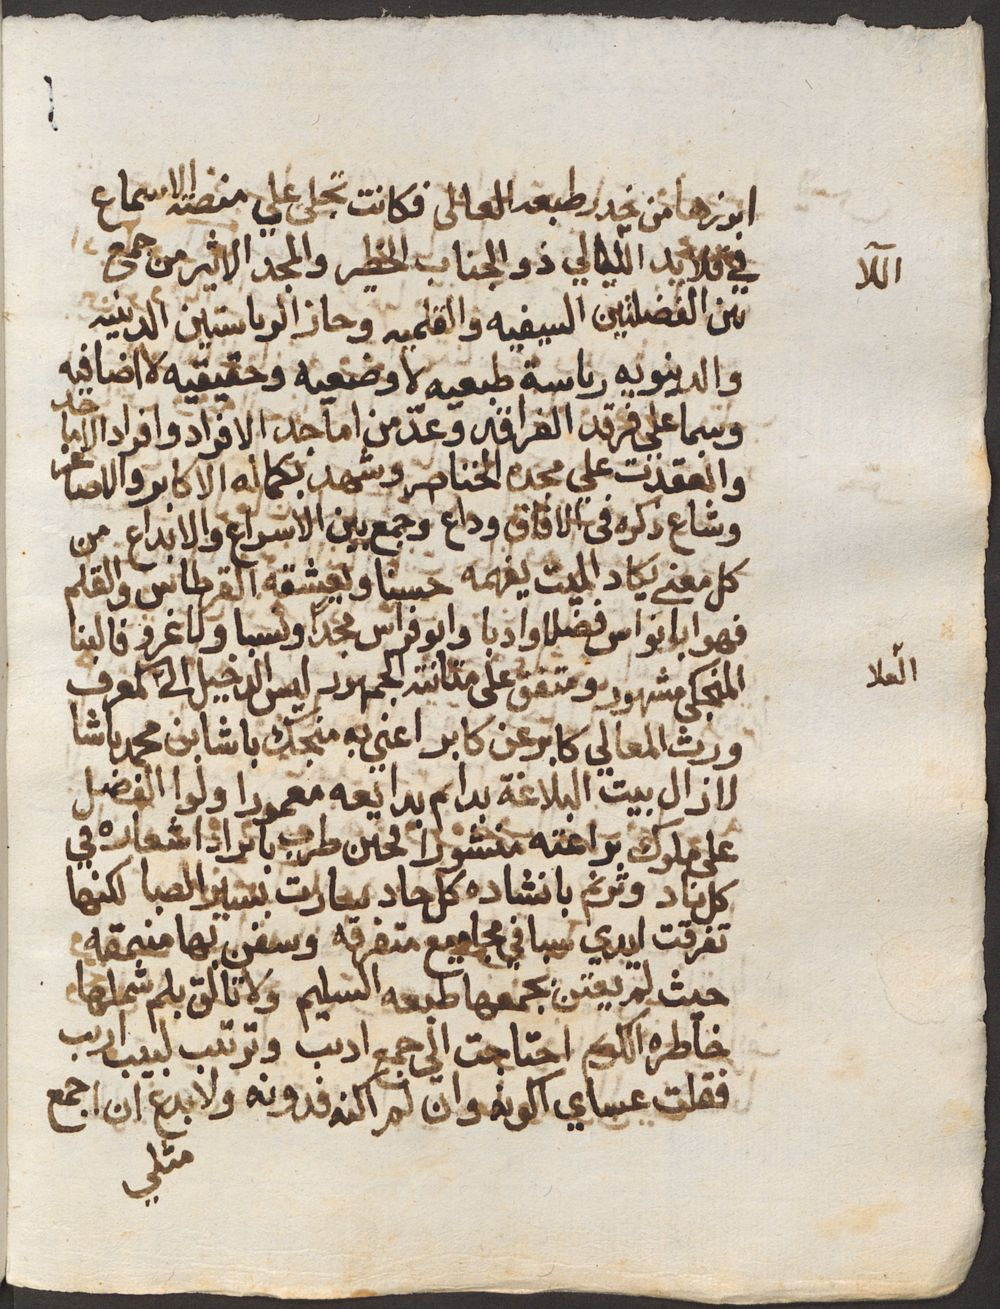 ابرزها من خدر طبعه العالى فكانت تجلى علي منصة الاسماع
في قلايد الليالي ذو الجناب الخطير والمجد الاثير من جمع
اللآ
بين الفضلتين السيفيه والقلميه وحاز الرياستين الدينيه
والدينويه رياسة طبعيه لا وضعيه وحقيقيه لا اضافيه
وسما علي فرقد الفراقد وعدّ من اماجد الافراد وافراد الاماجد
وانعقدت علي مجده الخناصر وشهد بكماله الاكابر والاصاغر
وشاع ذكره في الافاق وذاع وجمع بين الاسراع والابداع من
كل معني يكاد الميت يفهمه حسنا ويعشقه القرطاس والقلم
فهو ابا نواس فضلا وادبا وابو فراس مجدا ونسبا ولا غرو فالبنا
المنجكي مشهور ومتفق على متانته الجمهور ليس الدخيل الى كمعرف
العلا
ورث المعالي كابر عن كابر اعني به منجك باشا بن محمد باشا
لازال بيت البلاغة بدايم بدايعه معمورا ولوا الفضل
على ملوك براعته منشورا فحين طرب بايراد اشعاره في
كل ناد وترنم بانشاده كل حاد سارت بسير الصبا لكنها
تفرقت ايدي سبا في مجاميع متفرقه وسفن بها منمقه
حيث لم يعتن بجمعها طبعه السليم ولا تالق بلم شملها
خاطره الكريم احتاجت الى جمع اديب وترتيب لبيب اريب
فقلت عساي اكونه وان لم اكنه فدونه ولا بدع ان اجمع
مثلي